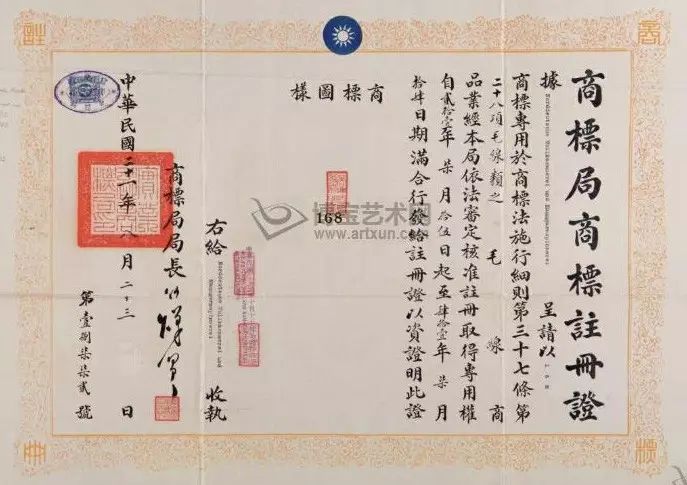 商標局商標註冊證
據 Norddeutsche 呈請以 168
商標專用於商標法施行細則第三十七條第
二十八項毛線類之毛線商
品業經本局依法審定核准註冊取得專用權
自貳拾壹年柒月拾伍日起至肆拾壹年柒月
拾肆日期滿合行發給註冊證以資證明此證
商標圖樣
168
右給 Norddeutsche 收執
商標局局長
中華民國二十一年八月二十三日
第壹捌柒柒貳號
博宝艺术网
www.artxun.com